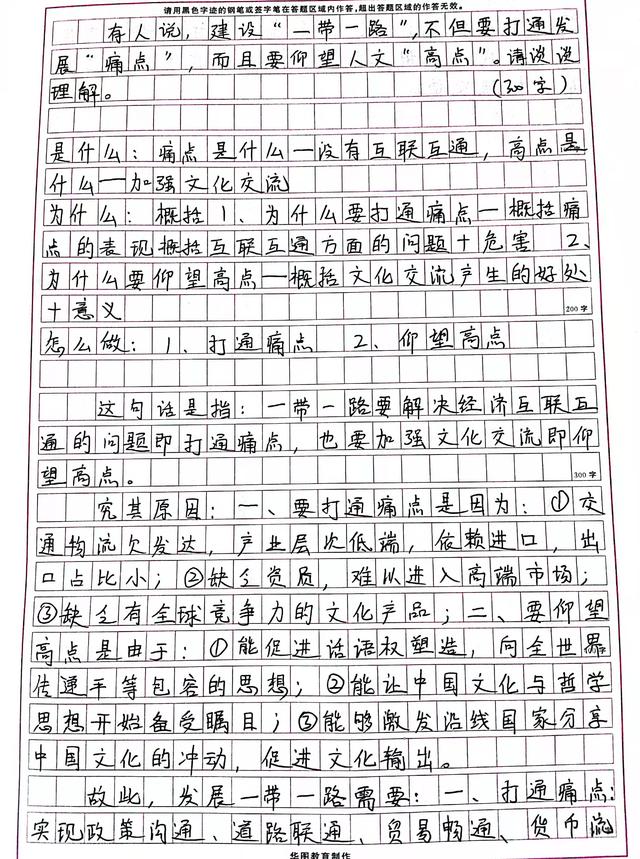 请用黑色字迹的钢笔或签字笔在答题区域内作答,超出答题区域的作答无效。
有人说，建设“一带一路”,不但要打通发
展“痛点”，而且要仰望人文“高点”。请谈谈
理解。（300字）
是什么：痛点是什么—没有互联互通，高点是
什么—加强文化交流
为什么：概括1、为什么要打通痛点—概括痛
点的表现概括互联互通方面的问题+危害 2、
为什么要仰望高点—概括文化交流产生的好处
+意义
200字
怎么做：1、打通痛点 2、仰望高点
这句话是指：一带一路要解决经济互联互
通的问题即打通痛点，也要加强文化交流即仰
望高点。
300字
究其原因：一、要打通痛点是因为：①交
通物流欠发达，产业层次低端，依赖进口，出
口占比小；②缺乏资质，难以进入高端市场；
③缺乏有全球竞争力的文化产品；二、要仰望
高点是由于：①能促进话语权塑造，向全世界
传递平等包容的思想；②能让中国文化与哲学
思想开始备受瞩目；③能够激发沿线国家分享
中国文化的冲动，促进文化输出。
故此，发展一带一路需要：一、打通痛点：
实现政策沟通、道路联通、贸易畅通、货币流
华图教育制作